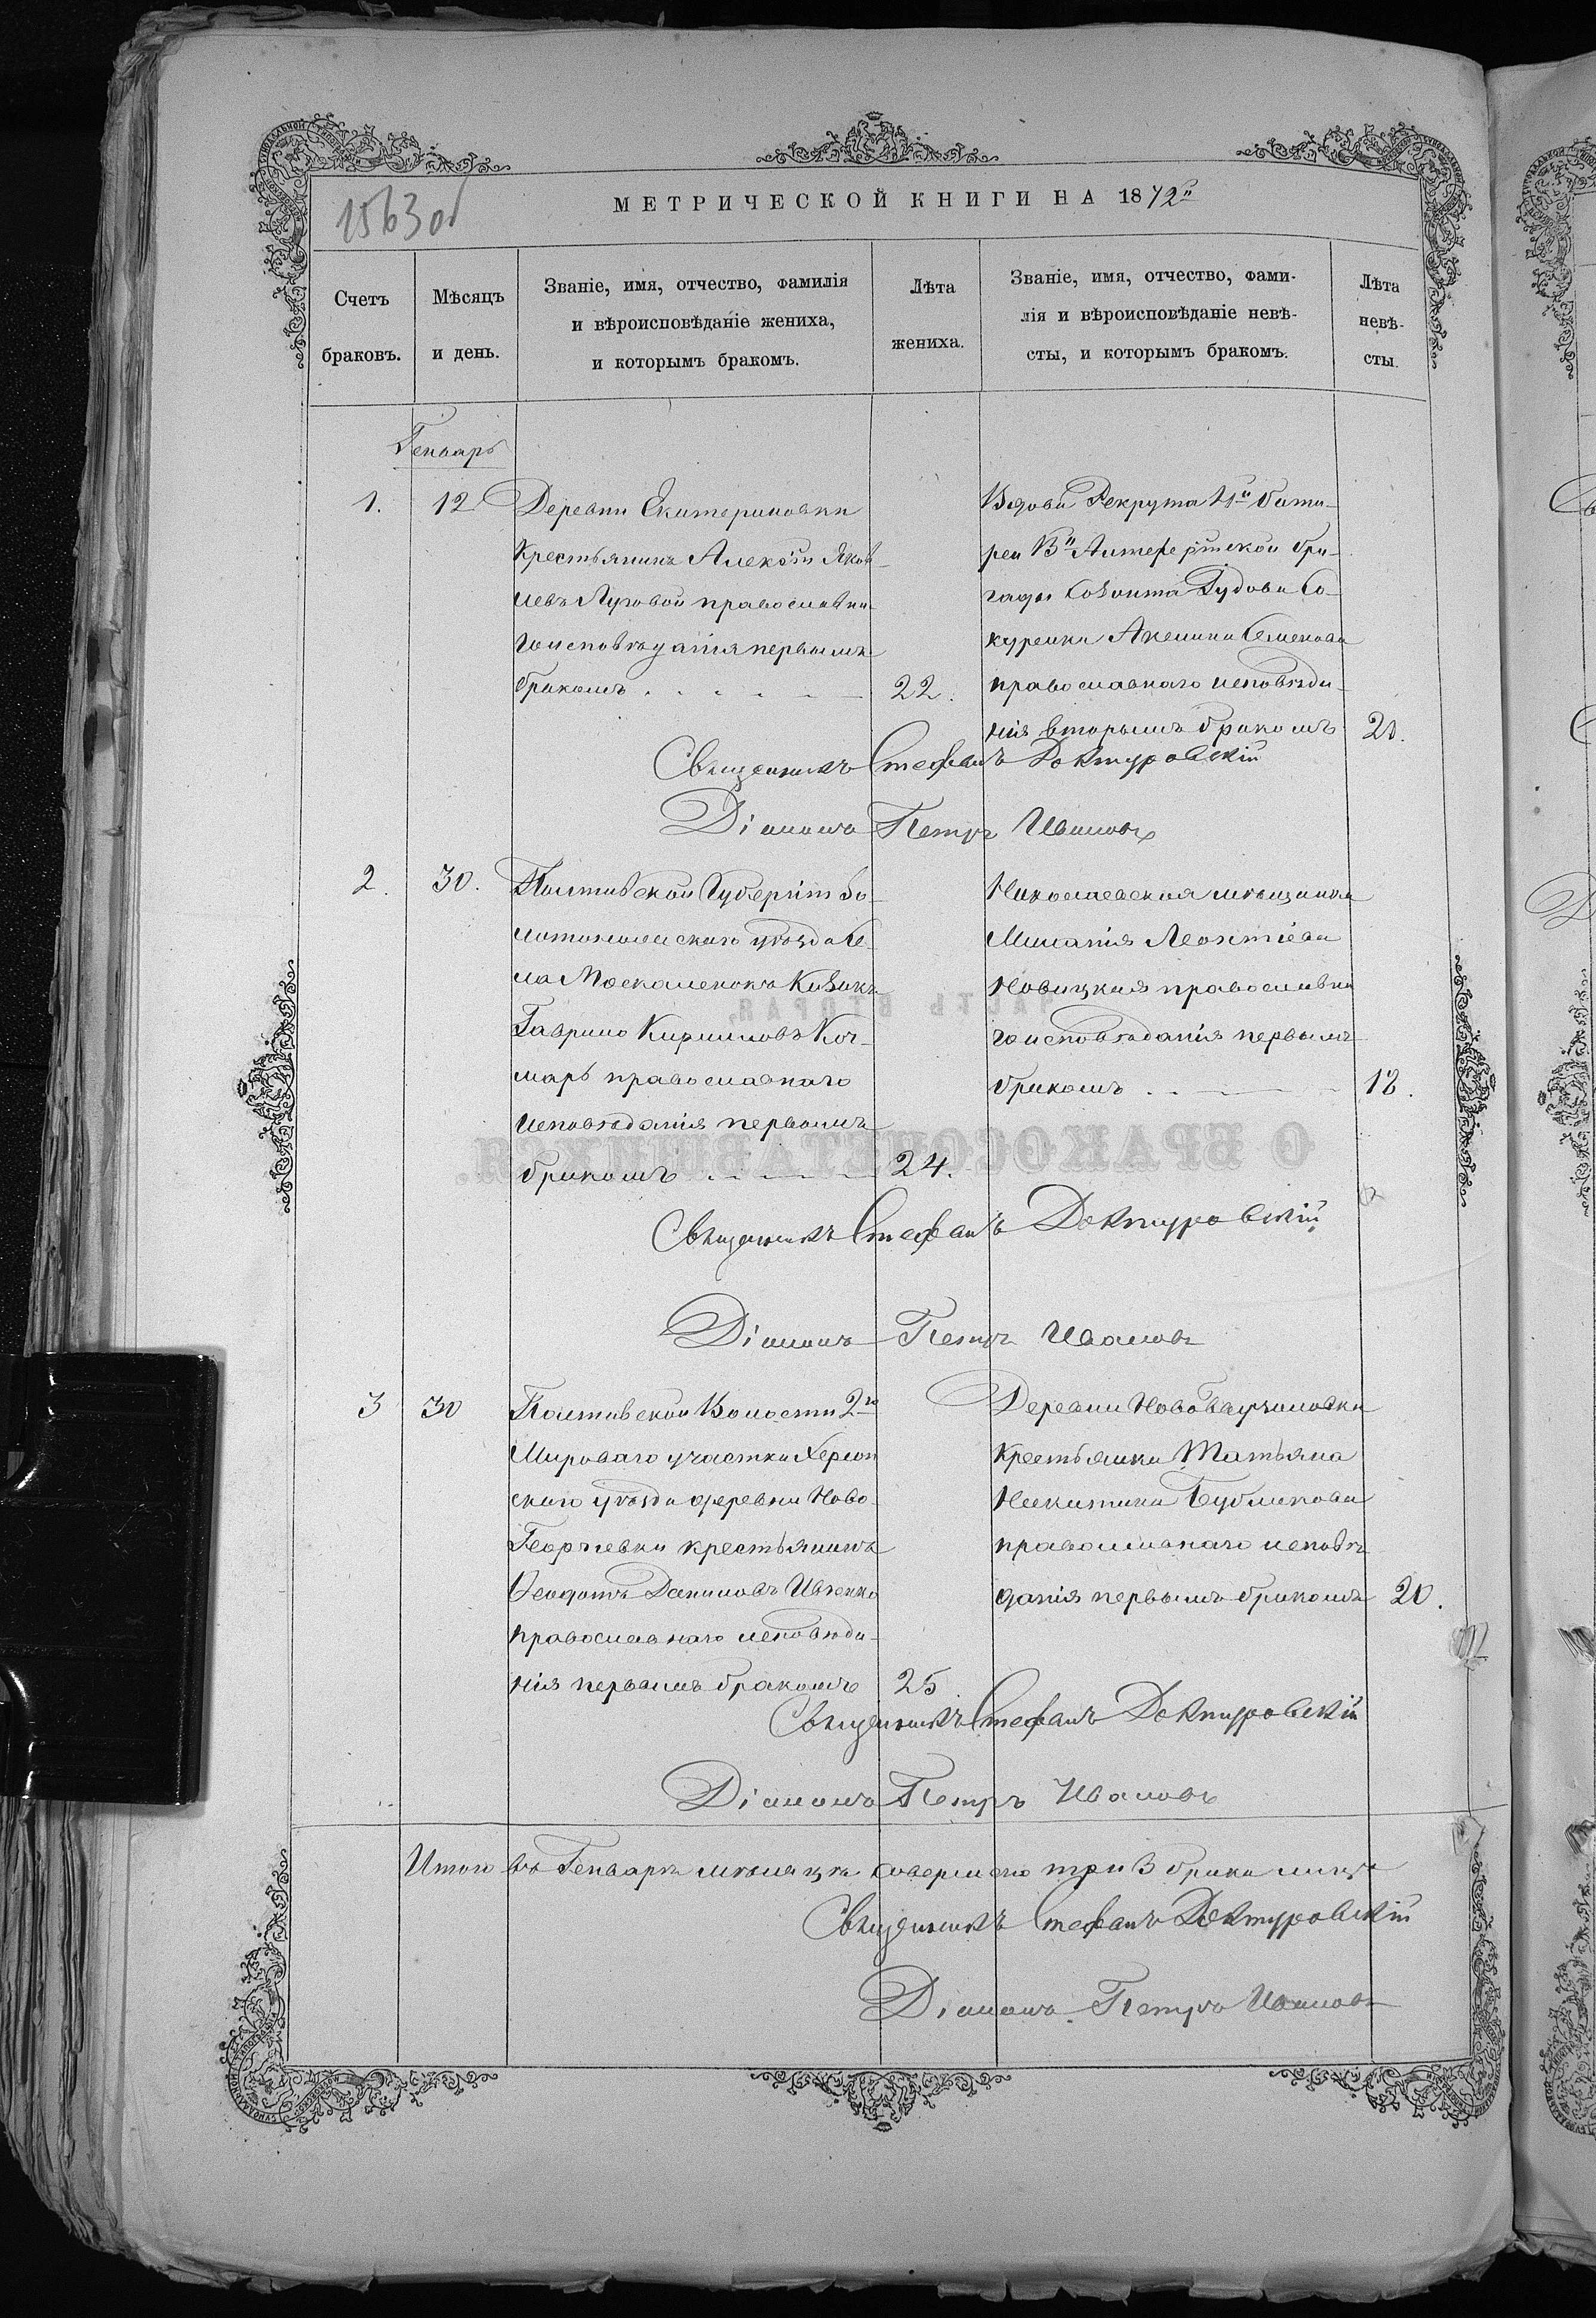 1563 об
МЕТРИЧЕСКОЙ КНИГИ НА 1872й
Счетъ браковъ.
Мѣсяцъ и день.
Званіе, имя, отчество, фамилія
и вѣроисповѣданіе жениха,
и которымъ бракомъ.
Лѣта жениха.
Званіе, имя, отчество, фами-
лія и вѣроисповѣданіе невѣ-
сты, и которымъ бракомъ.
Лѣта невѣ-сты.
Генварь
1. 12
Деревни Екатериновки
Крестьянинъ Алексѣй Яков-
левъ Луговой православна-
го исповѣданія первымъ
бракомъ 22.
Вдова Рекрута бата-
реи Артилерійской бри-
гады Рудова Со-
куренка Акелина Семенова
православнаго исповѣда-
нія вторымъ бракомъ 20.
Священникъ Стефанъ Доктуровскій
Діаконъ Петръ Ивановъ
2. 30.
Полтавской Губерніи Зо-
лотоношскаго уѣзда Се-
ла Москаленокъ Козакъ
Гаврило Кириловъ Коч-
марь православнаго
исповѣданія первымъ
бракомъ 24.
Николаевская мѣщанка
Миланія Леонтіева
Новицкая православна-
го исповѣданія первымъ
бракомъ 18.
Священникъ Стефанъ Доктуровскій
Діаконъ Петръ Ивановъ
3 30
Полтавской Волости 2го
Мироваго участка Херсон
скаго уѣзда деревни Ново-
Георгіевки крестьянинъ
Феодотъ Даниловъ Ивченко
православнаго исповѣда-
нія первымъ бракомъ 25
Деревни
Крестьянка Татьяна
Никитина Бубликова
православнаго исповѣ
данія первымъ бракомъ 20.
Священникъ Стефанъ Доктуровскій
Діаконъ Петръ Ивановъ
Итого въ Генварѣ мѣсяцѣ совершено три 3 брака
Священникъ Стефанъ Доктуровскій
Діаконъ Петръ Ивановъ